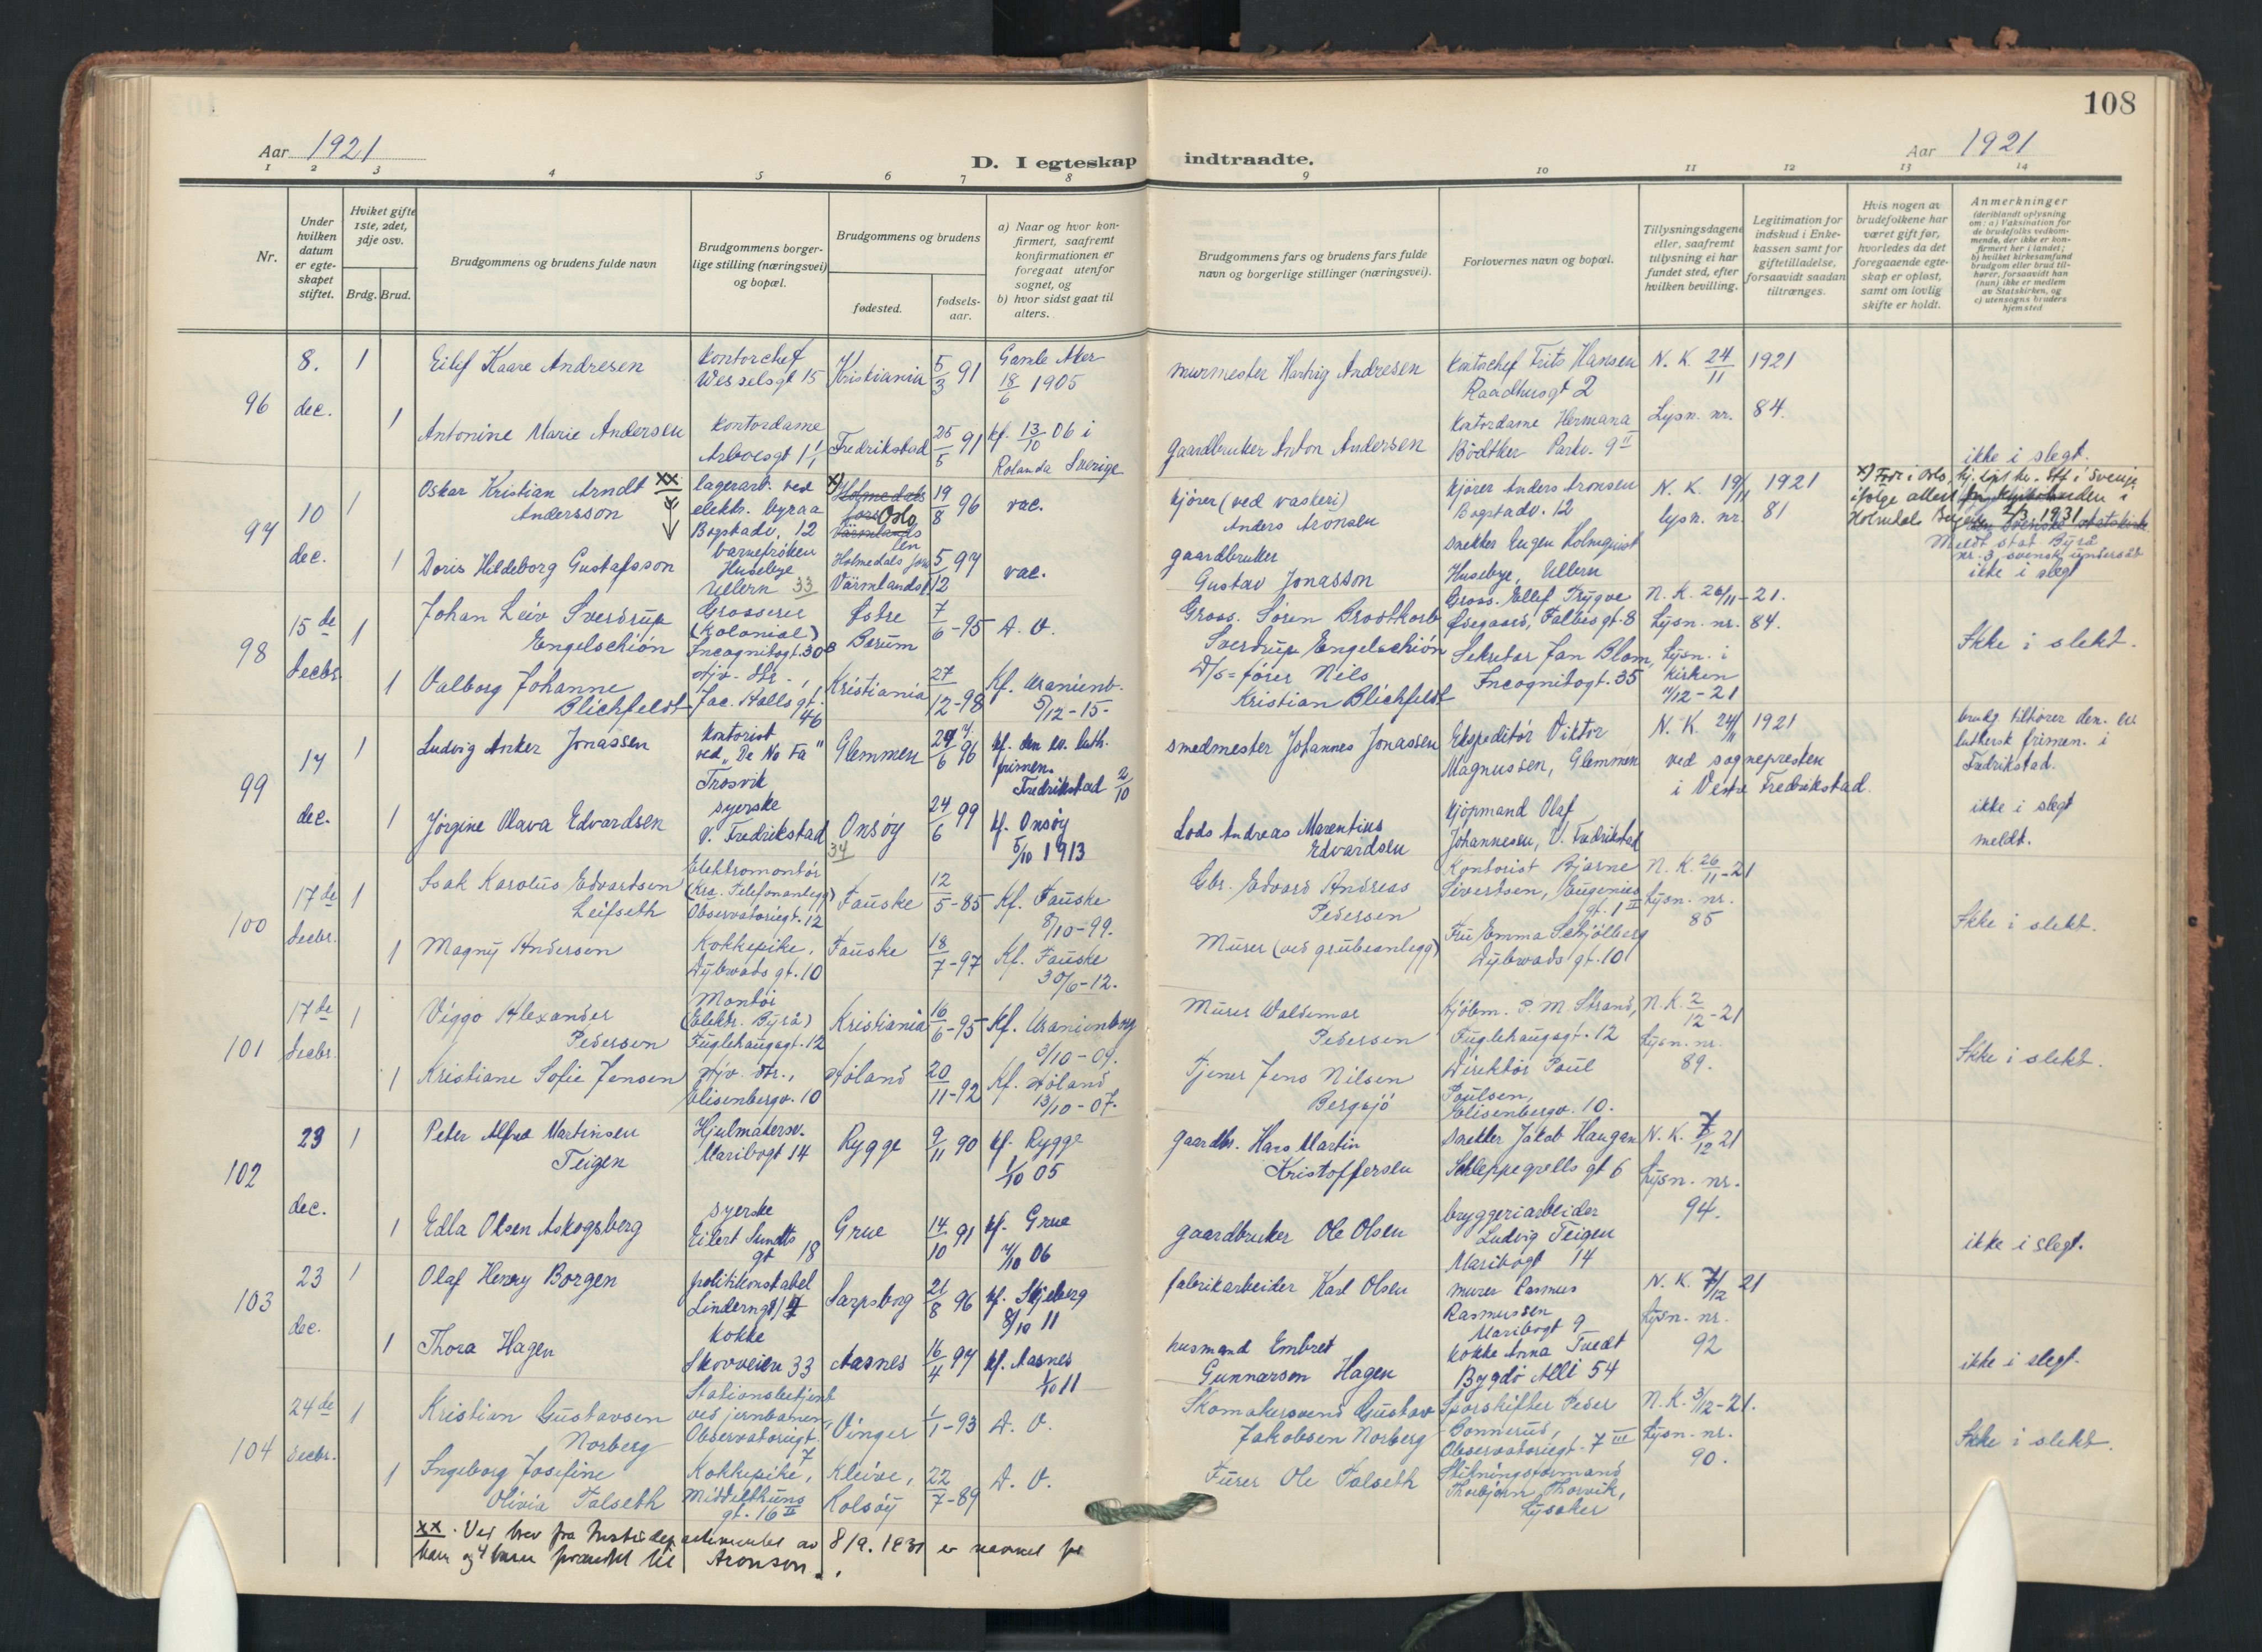 108
Aar 1921
D. I egteskap indtraadte.
Aar 1921
1 2 3 4 5 6 7 8 9 10 11 12 13 14
Nr.
Under hvilken datum er egteskapet stiftet.
Hviket gifte 1ste, 2det, 3dje osv.
Brdg. Brud.
Brudgommens og brudens fulde navn
Brudgommens borgerlige stilling (næringsvei) og bopæl.
Brudgommens og brudens
fødested.
fødselsaar.
a) Naar og hvor konfirmert, saafremt konfirmationen er foregaat utenfor sognet, og
b) hvor sidst gaat til alters.
Brudgommens fars og brudens fars fulde navn og borgerlige stillinger (næringsvei).
Forlovernes navn og bopæl.
Tillysningsdagene eller, saafremt tillysning ei har fundet sted, efter hvilken bevilling.
Legitimation for indskud i Enkekassen samt for giftetilladelse, forsaavidt saadan tiltrænges.
Hvis nogen av brudefolkene har været gift før, hvorledes da det foregaaende egteskap er opløst, samt om lovlig skifte er holdt.
Anmerkninger
(deriblandt oplysning om: a) Vaksination for de brudefolks vedkommende, der ikke er konfirmert her i landet; b) hvilket kirkesamfund brudgom eller brud tilhører, forsaavidt han (hun) ikke er medlem av Statskirken, og c) utensogns bruders hjemsted
96 8. dec. 1 Eilef Kaare Andresen kontorchef Wesselsgt 15 Kristiania 5/3 91 Gamle Aker 18/6 1905 murmester Hartvig Andresen Kontorchef Frits Hansen Raadhusgt 2 N. K. 24/11 1921
1 Antonine Marie Andersen kontordame Arboesgt 1 Fredrikstad 25/5 91 kf. 13/10 06 i Rolanda Sverige gaardbruker Anton Andersen kontordame Hermana Bödtker Parkv. 9 II Lysn. nr. 84. ikke i slegt.
97 10 dec. 1 Oskar Kristian Arndt xx Andersson lagerarb. ved elektr. byraa Bogstadv. 12 x) Holmedals Oslo Värmlands len 19/8 96 vac. kjører (ved vaskeri) Anders Aronsen kjører Anders Aronsen Bogstadv. 12 N. K. 19/11 1921 lysn. nr. 81
x) Født i Oslo, ifølge attest 2/3 1931
1 Doris Hildeborg Gustafsson barnefrøken Husebye Ullern 33 Holmedals Värmlands 5/12 97 vac. gaardbruker Gustav Jonasson snekker Eugen Holmquist Husebye, Ullern
Meldt stat Byrå nr. 3, svensk undersåt
ikke i slegt
98 15de decbr. 1 Johan Leiv Sverdrup Engelschión Grosserer (Kolonial) Incognitogt. 30 Østre Bærum 7/6 - 95 D. V. Gross. Søren Brostkorb Sverdrup Engelschión Gross. Ellef Trygve Øsegaard, Falbesgt. 8 N. K. 26/11 - 21. Lysn. nr. 84.
1 Valborg Johanne Blichfeldt Hjv. dtr., Jac. Aallsgt. 46 Kristiania 27/12 - 98 Kf. Uranienb. 5/12 - 15. D/S = fører Nils Kristian Blichfeldt Sekretær Jan Blom, Incognitogt. 35 Lysn. i kirken 11/12 - 21 Ikke i slekt.
99 17 dec. 1 Ludvig Anker Jonassen kontorist ved "De No Fa" Trosvik Glemmen 24/6 96 kf. den ev. luth. frimen. Fredrikstad 2/10 smedmester Johannes Jonassen Ekspeditör Viktor Magnussen, Glemmen N. K. 24/11 1921 ved sognepresten i Vestre Fredrikstad.
brudg. tilhører den ev. luthersk frimen. i Fredrikstad.
1 Jørgine Olava Edvardsen syerske V. Fredrikstad 34 Onsøy 24/6 99 kf. Onsøy 5/10 1913 Lods Andreas Marentius Edvardsen kjøpmand Olaf Johannesen, V. Fredrikstad ikke i slegt meldt.
100 17de decbr. 1 Isak Karolus Edvardsen Leifseth Elektromontör (Kra. Telefonanlegg) Observatoriegt. 12 Fauske 12/5 - 85 Kf. Fauske 8/10 - 99. Gbr. Edvard Andreas Pedersen Kontorist Bjarne Sivertsen, Eugenies gt. 1 II N. K. 26/11 - 21 Lysn. nr. 85
1 Magny Andersen Kokkepike, Dybwads gt. 10 Fauske 18/7 - 97 Kf. Fauske 30/6 - 12. Murer (ved grubeanlegg) Fru Emma Schjölberg Dybwads gt. 10 Ikke i slekt.
101 17de decbr. 1 Viggo Alexander Pedersen Montör (Elektr. Byrå) Fuglehaugsgt. 12 Kristiania 16/6 - 95 Kf. Uranienborg 3/10 - 09. Murer Waldemar Pedersen Kjöbm. P. M. Strand, Fuglehaugsgt. 12 N. K. 2/12 - 21 Lysn. nr. 89.
1 Kristiane Sofie Jensen Hjv. dtr., Elisenbergv. 10 Høland 20/11 - 92 Kf. Høland 13/10 - 07. Tjener Jens Nilsen Bergsjö Direktör Poul Poulsen, Elisenbergv. 10. Ikke i slekt.
102 23 dec. 1 Peter Alfred Martinsen Teigen Hjulmakersv. Maribogt 14 Rygge 9/11 90 kf. Rygge 1/10 05 gaardbr. Hans Martin Kristoffersen snekker Jakob Haugan Schleppegrells gt 6 N. K. 7/12 21 Lysn. nr. 94.
1 Edla Olsen Askogsberg syerske Eilert Sundts gt 18 Grue 14/10 91 kf. Grue 7/10 06 gaardbruker Ole Olsen bryggeriarbeider Ludvig Teigen Maribogt 14 ikke i slegt.
103 23 dec. 1 Olaf Henry Borgen politikonstabel Linderngt Sarpsborg 21/8 96 kf. Skjeberg 8/10 11 fabrikarbeider Karl Olsen murer Rasmus Rasmussen Maribogt 9 N. K. 7/12 21 Lysn. nr. 92
1 Thora Hagen kokke Skovveien 33 Aasnes 16/4 97 kf. Aasnes 1/10 11 husmand Embret Gunnarson Hagen kokke Anna Tvedt Bygdö Allé 54 ikke i slegt.
104 24de decbr. 1 Kristian Gustavsen Norberg Stationsbetjent ved jernbanen Observatoriegt. 7 Vinger 1/1 - 93 D. V. Skomakersvend Gustav Jakobsen Norberg Sporskifter Peder Bonnerud, Observatoriegt. 7 III N. K. 3/12 - 21. Lysn. nr. 90.
1 Ingeborg Josefine Olivia Talseth Kokkepike, Middelthuns gt. 16 II Kleive, Bolsöy 22/7 - 89 D. V. Furer Ole Talseth Stikningsformand Thorbjørn Thorvik, Lysaker Ikke i slekt.
xx. Ved brev fra Justisdepartementet av 8/9. 1931 er navnet for
ham og 4 barn forandret til Aronson.